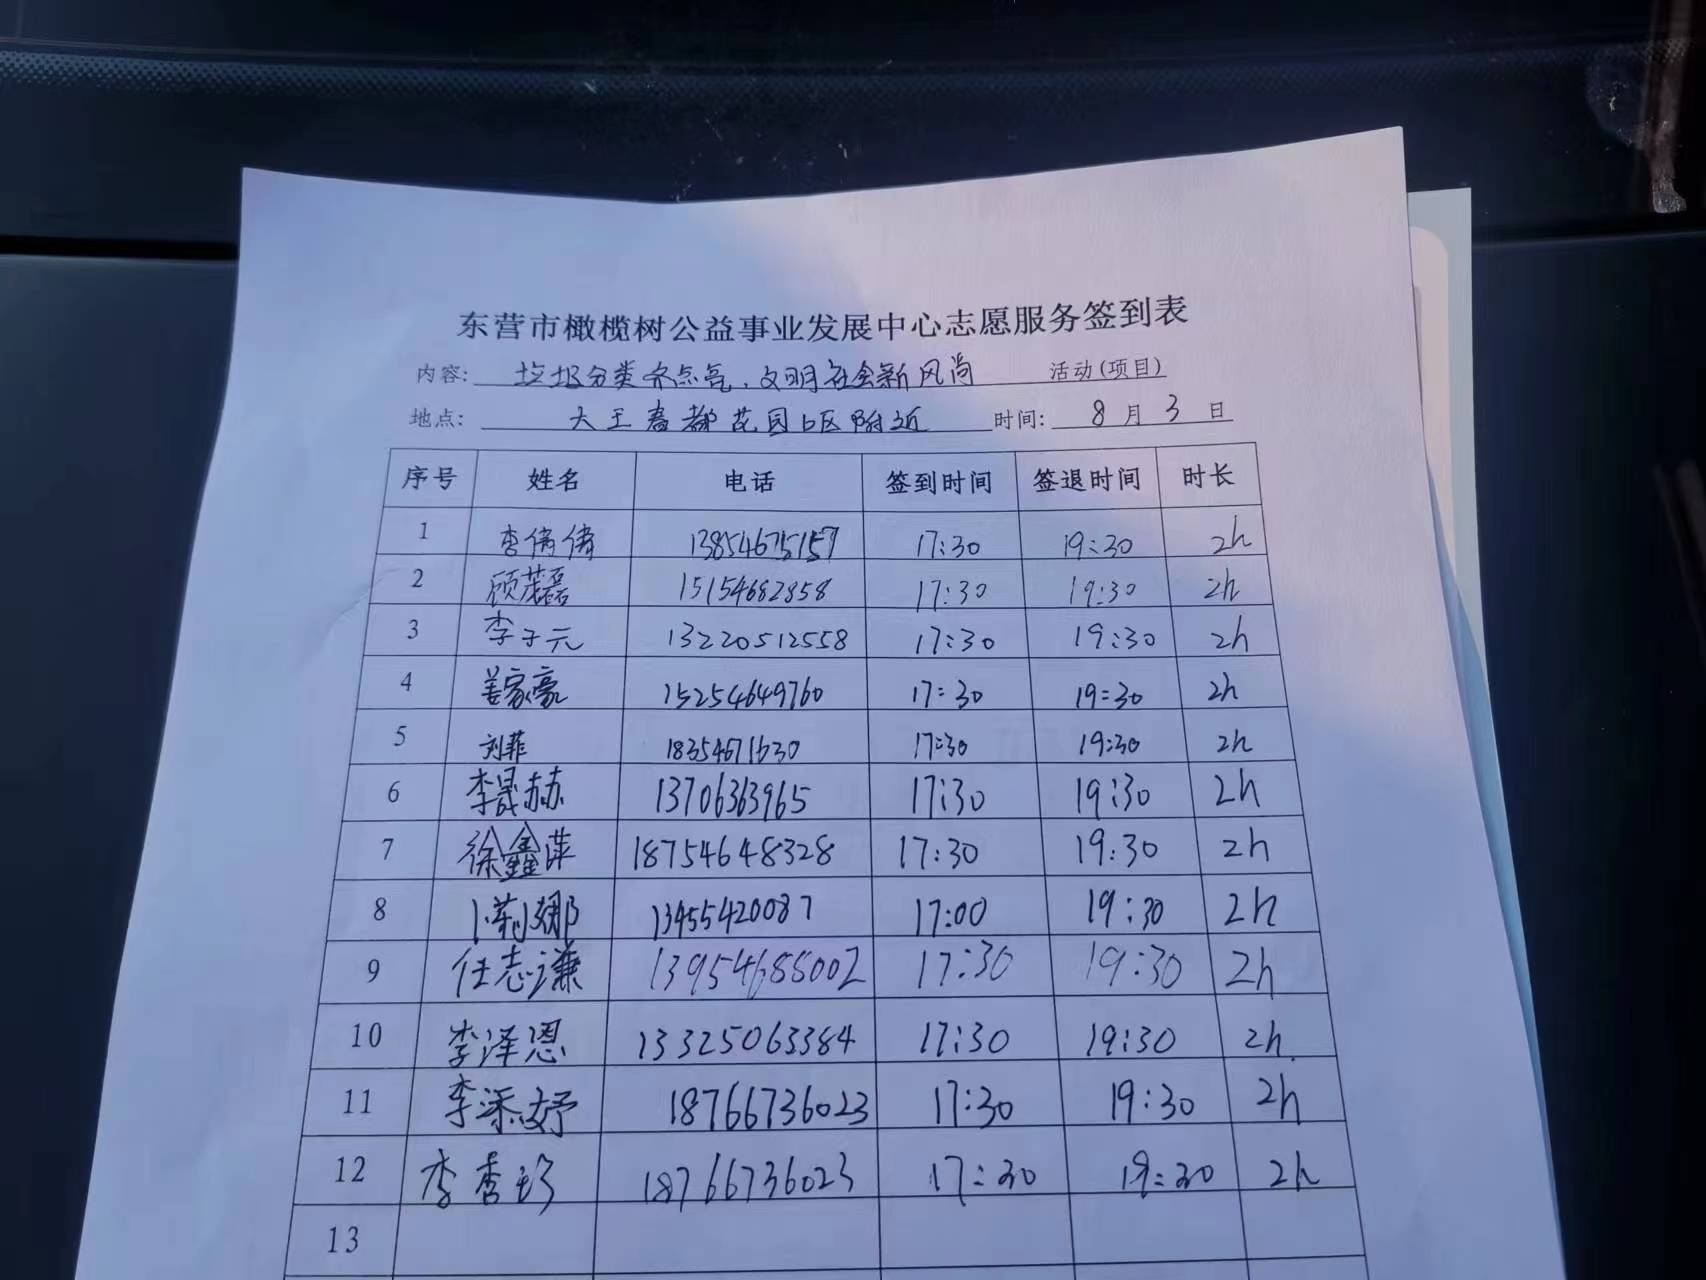 东营市橄榄树公益事业发展中心志愿服务签到表
内容: 垃圾分类齐点亮、文明社会新风尚 活动(项目)
地点: 大王春都花园小区附近 时间: 8月3日
序号 姓名 电话 签到时间 签退时间 时长
1 李倩倩 13854675157 17:30 19:30 2h
2 顾茂磊 15154682858 17:30 19:30 2h
3 李子元 13220512558 17:30 19:30 2h
4 姜家豪 15254649760 17:30 19:30 2h
5 刘菲 18354671630 17:30 19:30 2h
6 李晟赫 13706363965 17:30 19:30 2h
7 徐鑫萍 18754648328 17:30 19:30 2h
8 卜莉娜 13455420087 17:00 19:30 2h
9 任志谦 13954688002 17:30 19:30 2h
10 李泽恩 13325063384 17:30 19:30 2h
11 李添妤 18766736023 17:30 19:30 2h
12 李香珍 18766736023 17:30 19:30 2h
13